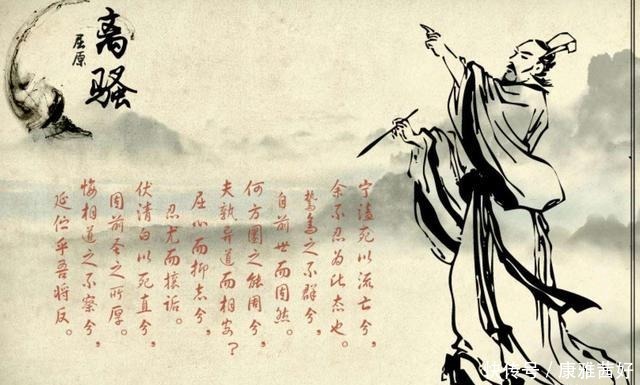 离骚
屈原
宁溘死以流亡兮，
余不忍为此态也。
鸷鸟之不群兮，
自前世而固然。
何方圜之能周兮，
夫孰异道而相安？
屈心而抑志兮，
忍尤而攘诟。
伏清白以死直兮，
固前圣之所厚。
悔相道之不察兮，
延伫乎吾将反。
传号／康雅茜好